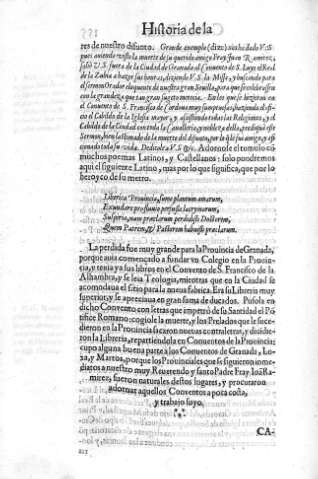 Historia de la
tes de nuestro difunto. Grande exemplo (dize) nos ha dado V. S.
pues aviendo visto la muerte de su querido amigo Fray Iuan Ramirez,
salió V. S. fuera de la Ciudad de Granada al Convento de S. Luys el Real
de la Zubia a hazerle sus honras, diziendo V. S. la Missa, y buscando para
el Sermon Orador eloquente de nuestra gran Sevilla, para que se celebrassen
con la grandeza que tan gran sugeto merecia. En las que se hizieron en el
Convento de S. Francisco de Cordova muy conocidas, diziendo el oficio
el Cabildo de la Iglesia mayor, y assistiendo todas las Religiones, y el
Cabildo de la Ciudad con toda la Cavalleria y nobleza della, prediquè este
Sermon, bien lastimado de la muerte del difunto, por lo que fue mi amigo, y es-
timado toda su vida. Dedicolo a V. S. &c. Adornòle el tomulo cō
muchos poemas Latinos, y Castellanos: solo pondremos
aqui el siguiente Latino, mas por lo que significa, que por lo
heroyco de su metro.
Iberica Provincia, sume planctum amarum,
Ecundare pro fluvio perfusis lacrymarum,
Suspiria, nam præclarum perdidisti Doctorem,
Quem Patrem, & Pastorem habuisse præclarum.
La perdida fue muy grande para la Provincia de Granada,
porque avia començado a fundar vn Colegio en la Provin-
cia, y tenia ya sus libros en el Convento de S. Francisco de la
Alhambra, y se leia Teologia, mientras que en la Ciudad se
acomodava el sitio para la nueva fabrica. Era su Libreria muy
superior, y se apreciava en gran suma de ducados. Pusola en
dicho Convento con letras que impetrò de su Santidad el Pō
tifice Romano cogiole la muerte, y los Prelados que le suce-
dieron en la Provincia sacaron nuevas contraletras, y dividie-
ron la Libreria, repartiendola en Conventos de la Provincia;
cupo alguna buena parte a los Conventos de Granada, Lo-
xa, y Martos, porque los Provinciales que se siguieron inme-
diatos a nuestro muy Reverendo y santo Padre Fray Iuā Ra-
mirez, fueron naturales destos lugares, y procuraron
adornar aquellos Conventos a poca costa,
y trabajo suyo.
CA-